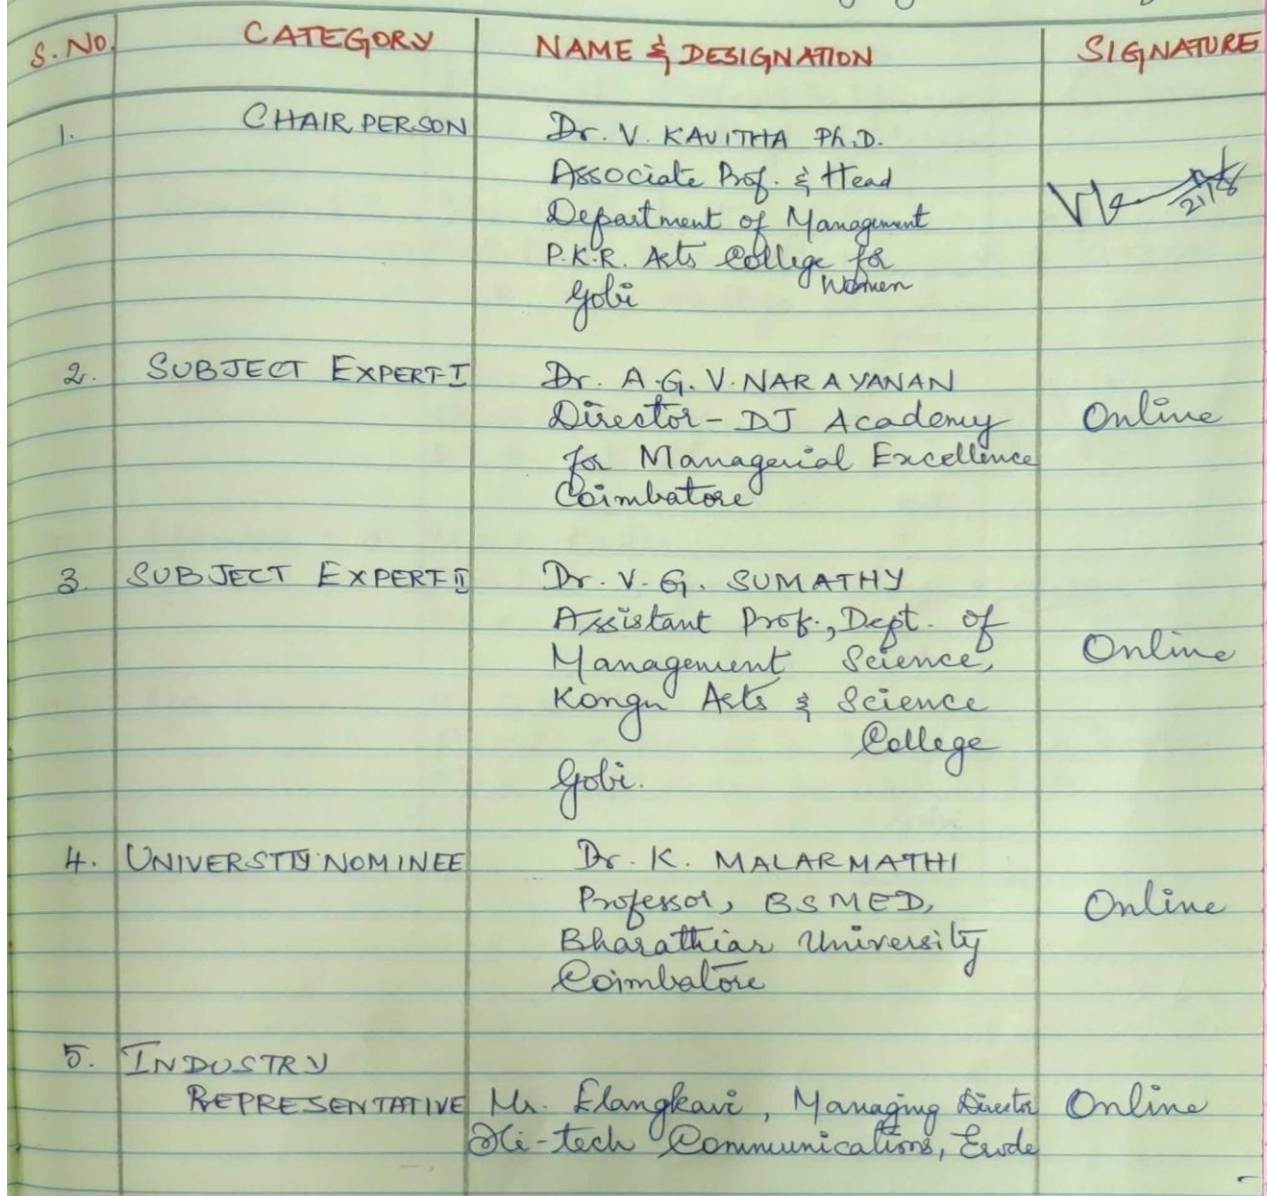 S. No. CATEGORY NAME & DESIGNATION SIGNATURE
1. CHAIRPERSON Dr. V. KAVITHA Ph.D.
Associate Prof. & Head
Department of Management
P.K.R. Arts College for
Women
Gobi
2. SUBJECT EXPERT-I Dr. A.G.V. NARAYANAN
Director - DJ Academy Online
for Managerial Excellence
Coimbatore
3. SUBJECT EXPERT-II Dr. V. G. SUMATHY
Assistant Prof., Dept. of
Management Science, Online
Kongu Arts & Science
College
Gobi.
4. UNIVERSTIY NOMINEE Dr. K. MALARMATHI
Professor, BSMED, Online
Bharathiar University
Coimbatore
5. INDUSTRY
REPRESENTATIVE Mr. Elangkavi, Managing Director Online
Hi-tech Communications, Erode